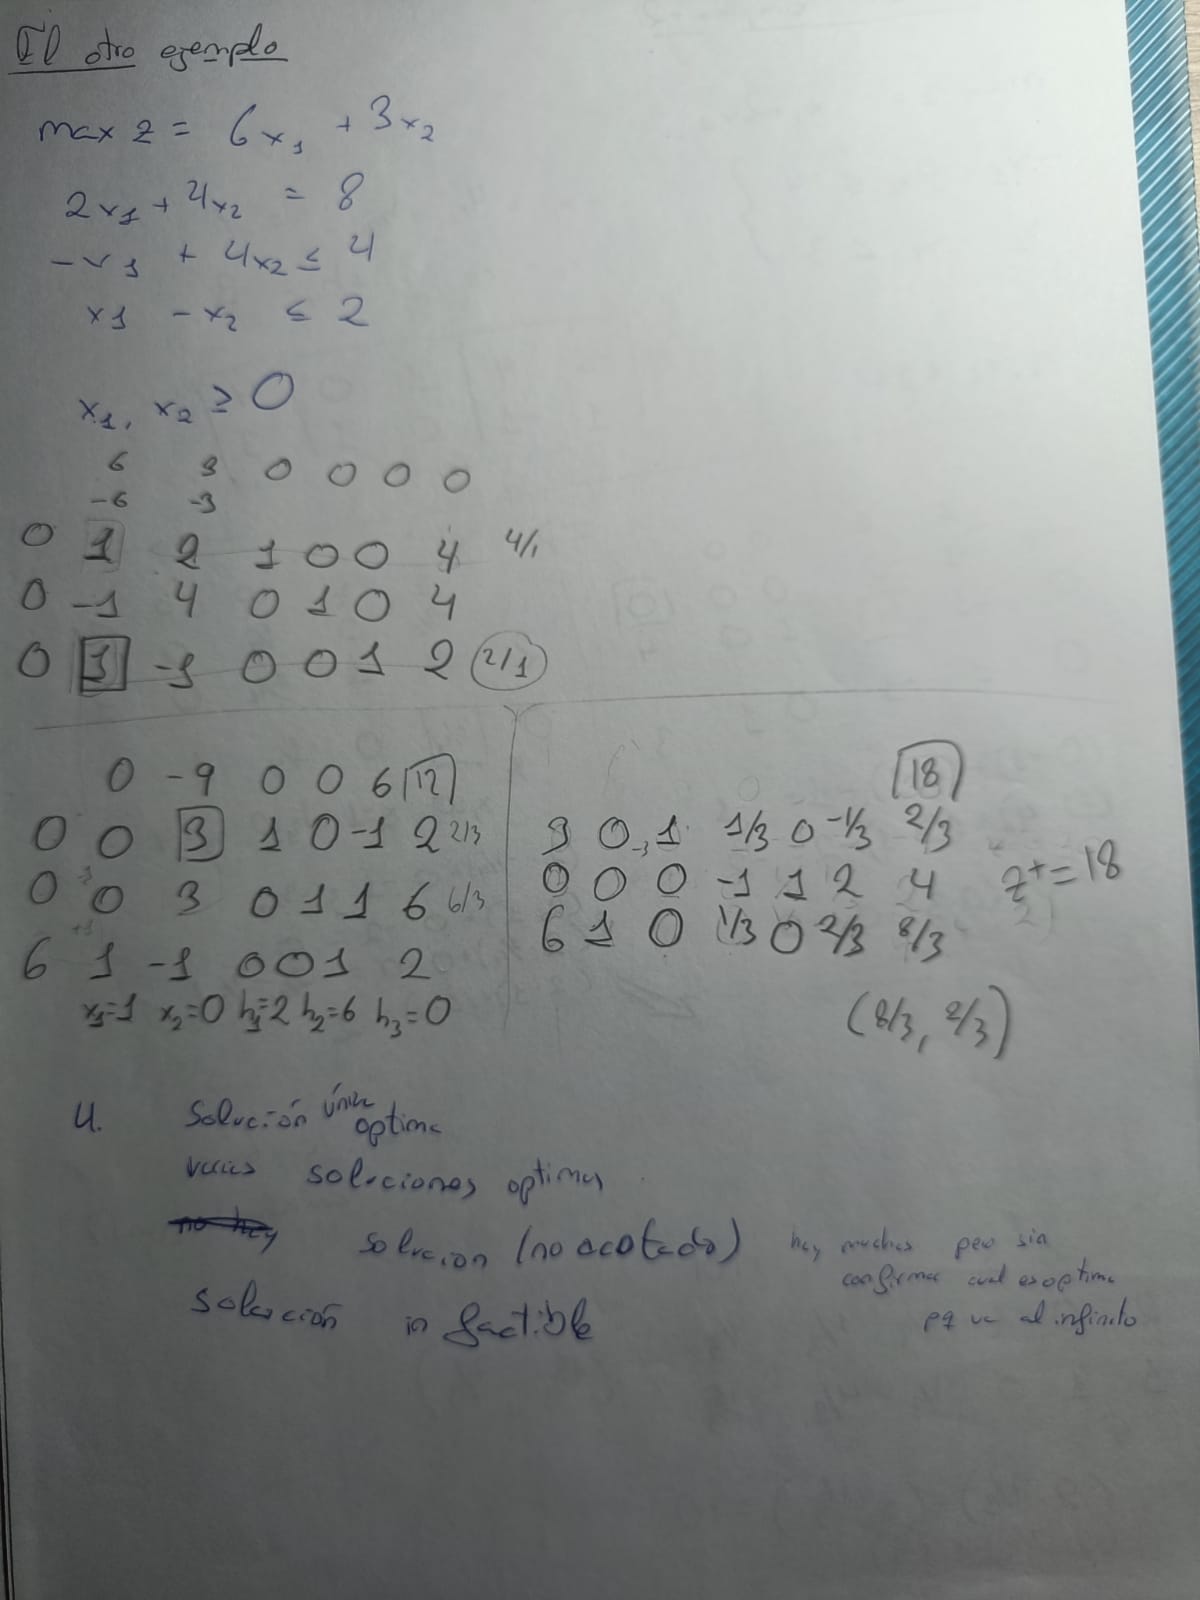 El otro ejemplo
max z = 6x1 + 3x2
2x1 + 4x2 = 8
-x1 + 4x2 ≤ 4
x1 - x2 ≤ 2
x1, x2 ≥ 0
6 3 0 0 0 0
-6 -3
0 1 2 1 0 0 4 4/1
0 -1 4 0 1 0 4
0 1 -1 0 0 1 2 2/1
0 -9 0 0 6 12
0 0 3 1 0 -1 2 2/3
0 0 3 0 1 1 6 6/3
6 1 -1 0 0 1 2
x1=1 x2=0 h1=2 h2=6 h3=0
18
3 0 1 1/3 0 -1/3 2/3
0 0 0 -1 1 2 4
6 1 0 1/3 0 2/3 8/3
z+=18
(8/3, 2/3)
4. Solución única optima
varias soluciones optimas
no hay solución (no acotado) hay muchas pero sin
confirmar cual es optima
pq va al infinito
solución infactible